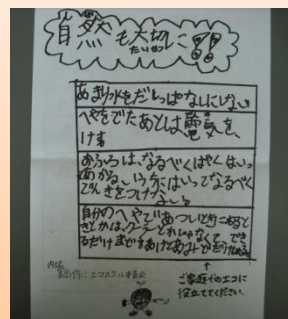 自然も大切に!!
たいせつ
あまり水をだしっぱなしにしない
へやをでたあとは電気を、
けす
おふろは、なるべくはやくはいっ
あかるいうちにはいってなるべく
でんきをつけない。
自分のへやであついときにねると
きとかは、クーラーとかじゃなくて、でき
るだけまどをあけてあみどだけ
ご家庭でのエコに
役立ててください。